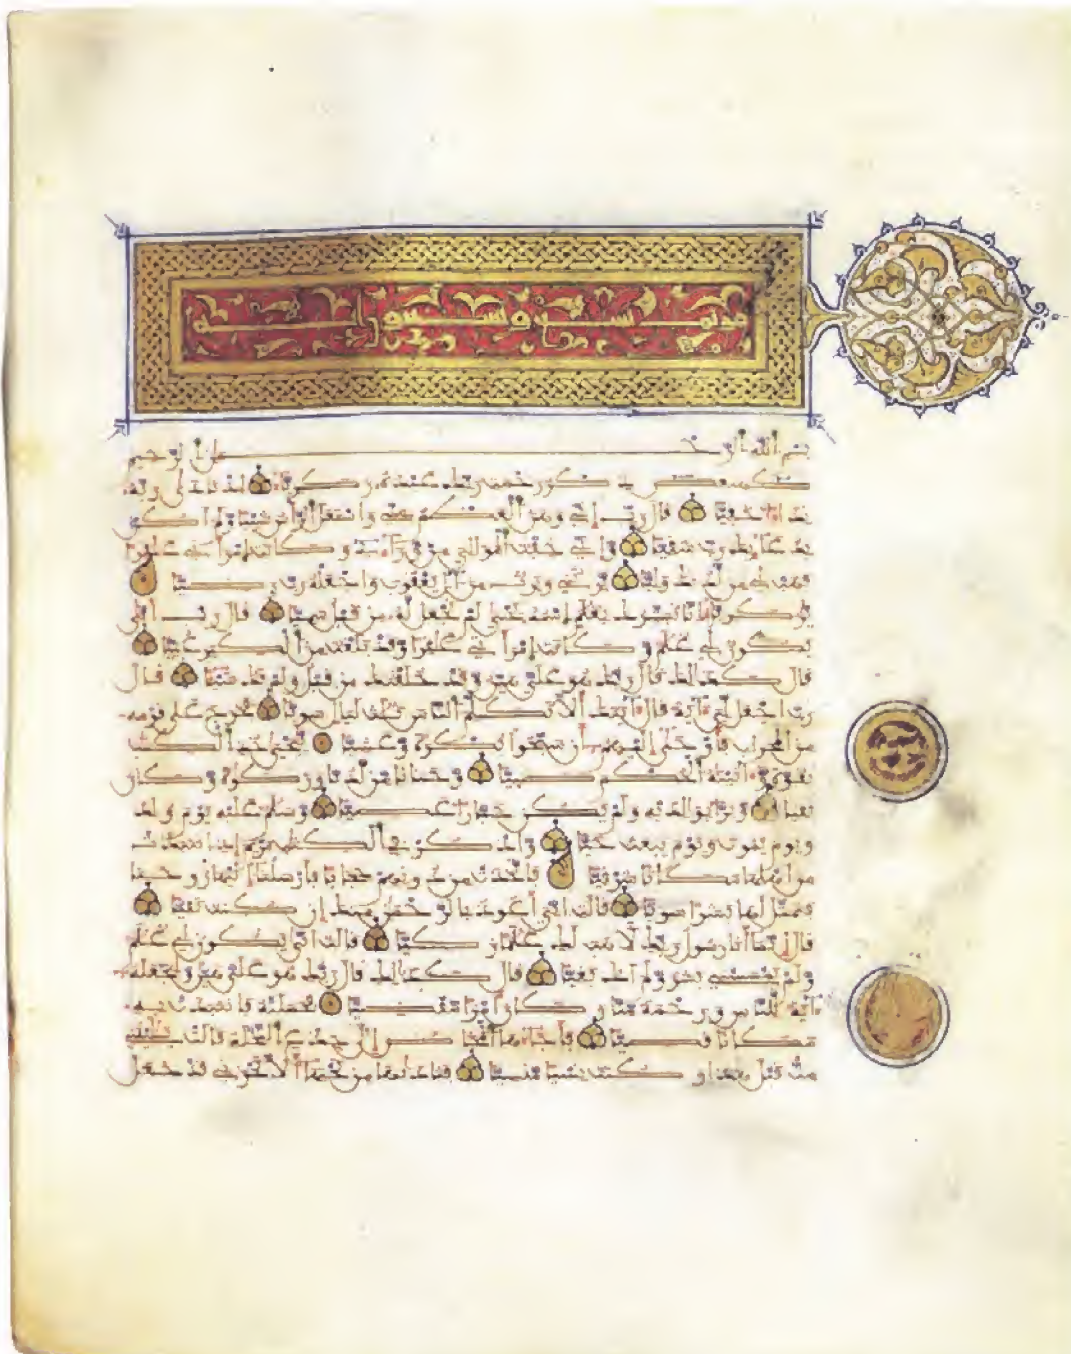 بسم الله الرحمن الرحيم
كهيعص ذكر رحمت ربك عبده زكرياء إذ نادى ربه
نداء خفيا قال رب إني وهن العظم مني واشتعل الرأس شيبا ولم أكن
بدعائك رب شقيا وإني خفت الموالي من وراءي وكانت امرأتي عاقرا
فهب لي من لدنك وليا يرثني ويرث من آل يعقوب واجعله رب رضيا
يزكرياء إنا نبشرك بغلم اسمه يحيى لم نجعل له من قبل سميا قال رب أنى
يكون لي غلم وكانت امرأتي عاقرا وقد بلغت من الكبر عتيا
قال كذلك قال ربك هو علي هين وقد خلقتك من قبل ولم تك شيئا قال
رب اجعل لي ءاية قال ءايتك ألا تكلم الناس ثلث ليال سويا فخرج على قومه
من المحراب فأوحى إليهم أن سبحوا بكرة وعشيا ييحيى خذ الكتب
بقوة وءاتينه الحكم صبيا وحنانا من لدنا وزكوة وكان
تقيا وبرا بوالديه ولم يكن جبارا عصيا وسلم عليه يوم ولد
ويوم يموت ويوم يبعث حيا واذكر في الكتب مريم إذ انتبذت
من أهلها مكانا شرقيا فاتخذت من دونهم حجابا فأرسلنا إليها روحنا
فتمثل لها بشرا سويا قالت إني أعوذ بالرحمن منك إن كنت تقيا
قال إنما أنا رسول ربك لأهب لك غلما زكيا قالت أنى يكون لي غلم
ولم يمسسني بشر ولم أك بغيا قال كذلك قال ربك هو علي هين ولنجعله
ءاية للناس ورحمة منا وكان أمرا مقضيا فحملته فانتبذت به
مكانا قصيا فأجاءها المخاض إلى جذع النخلة قالت يليتني
مت قبل هذا وكنت نسيا منسيا فنادها من تحتها ألا تحزني قد جعل